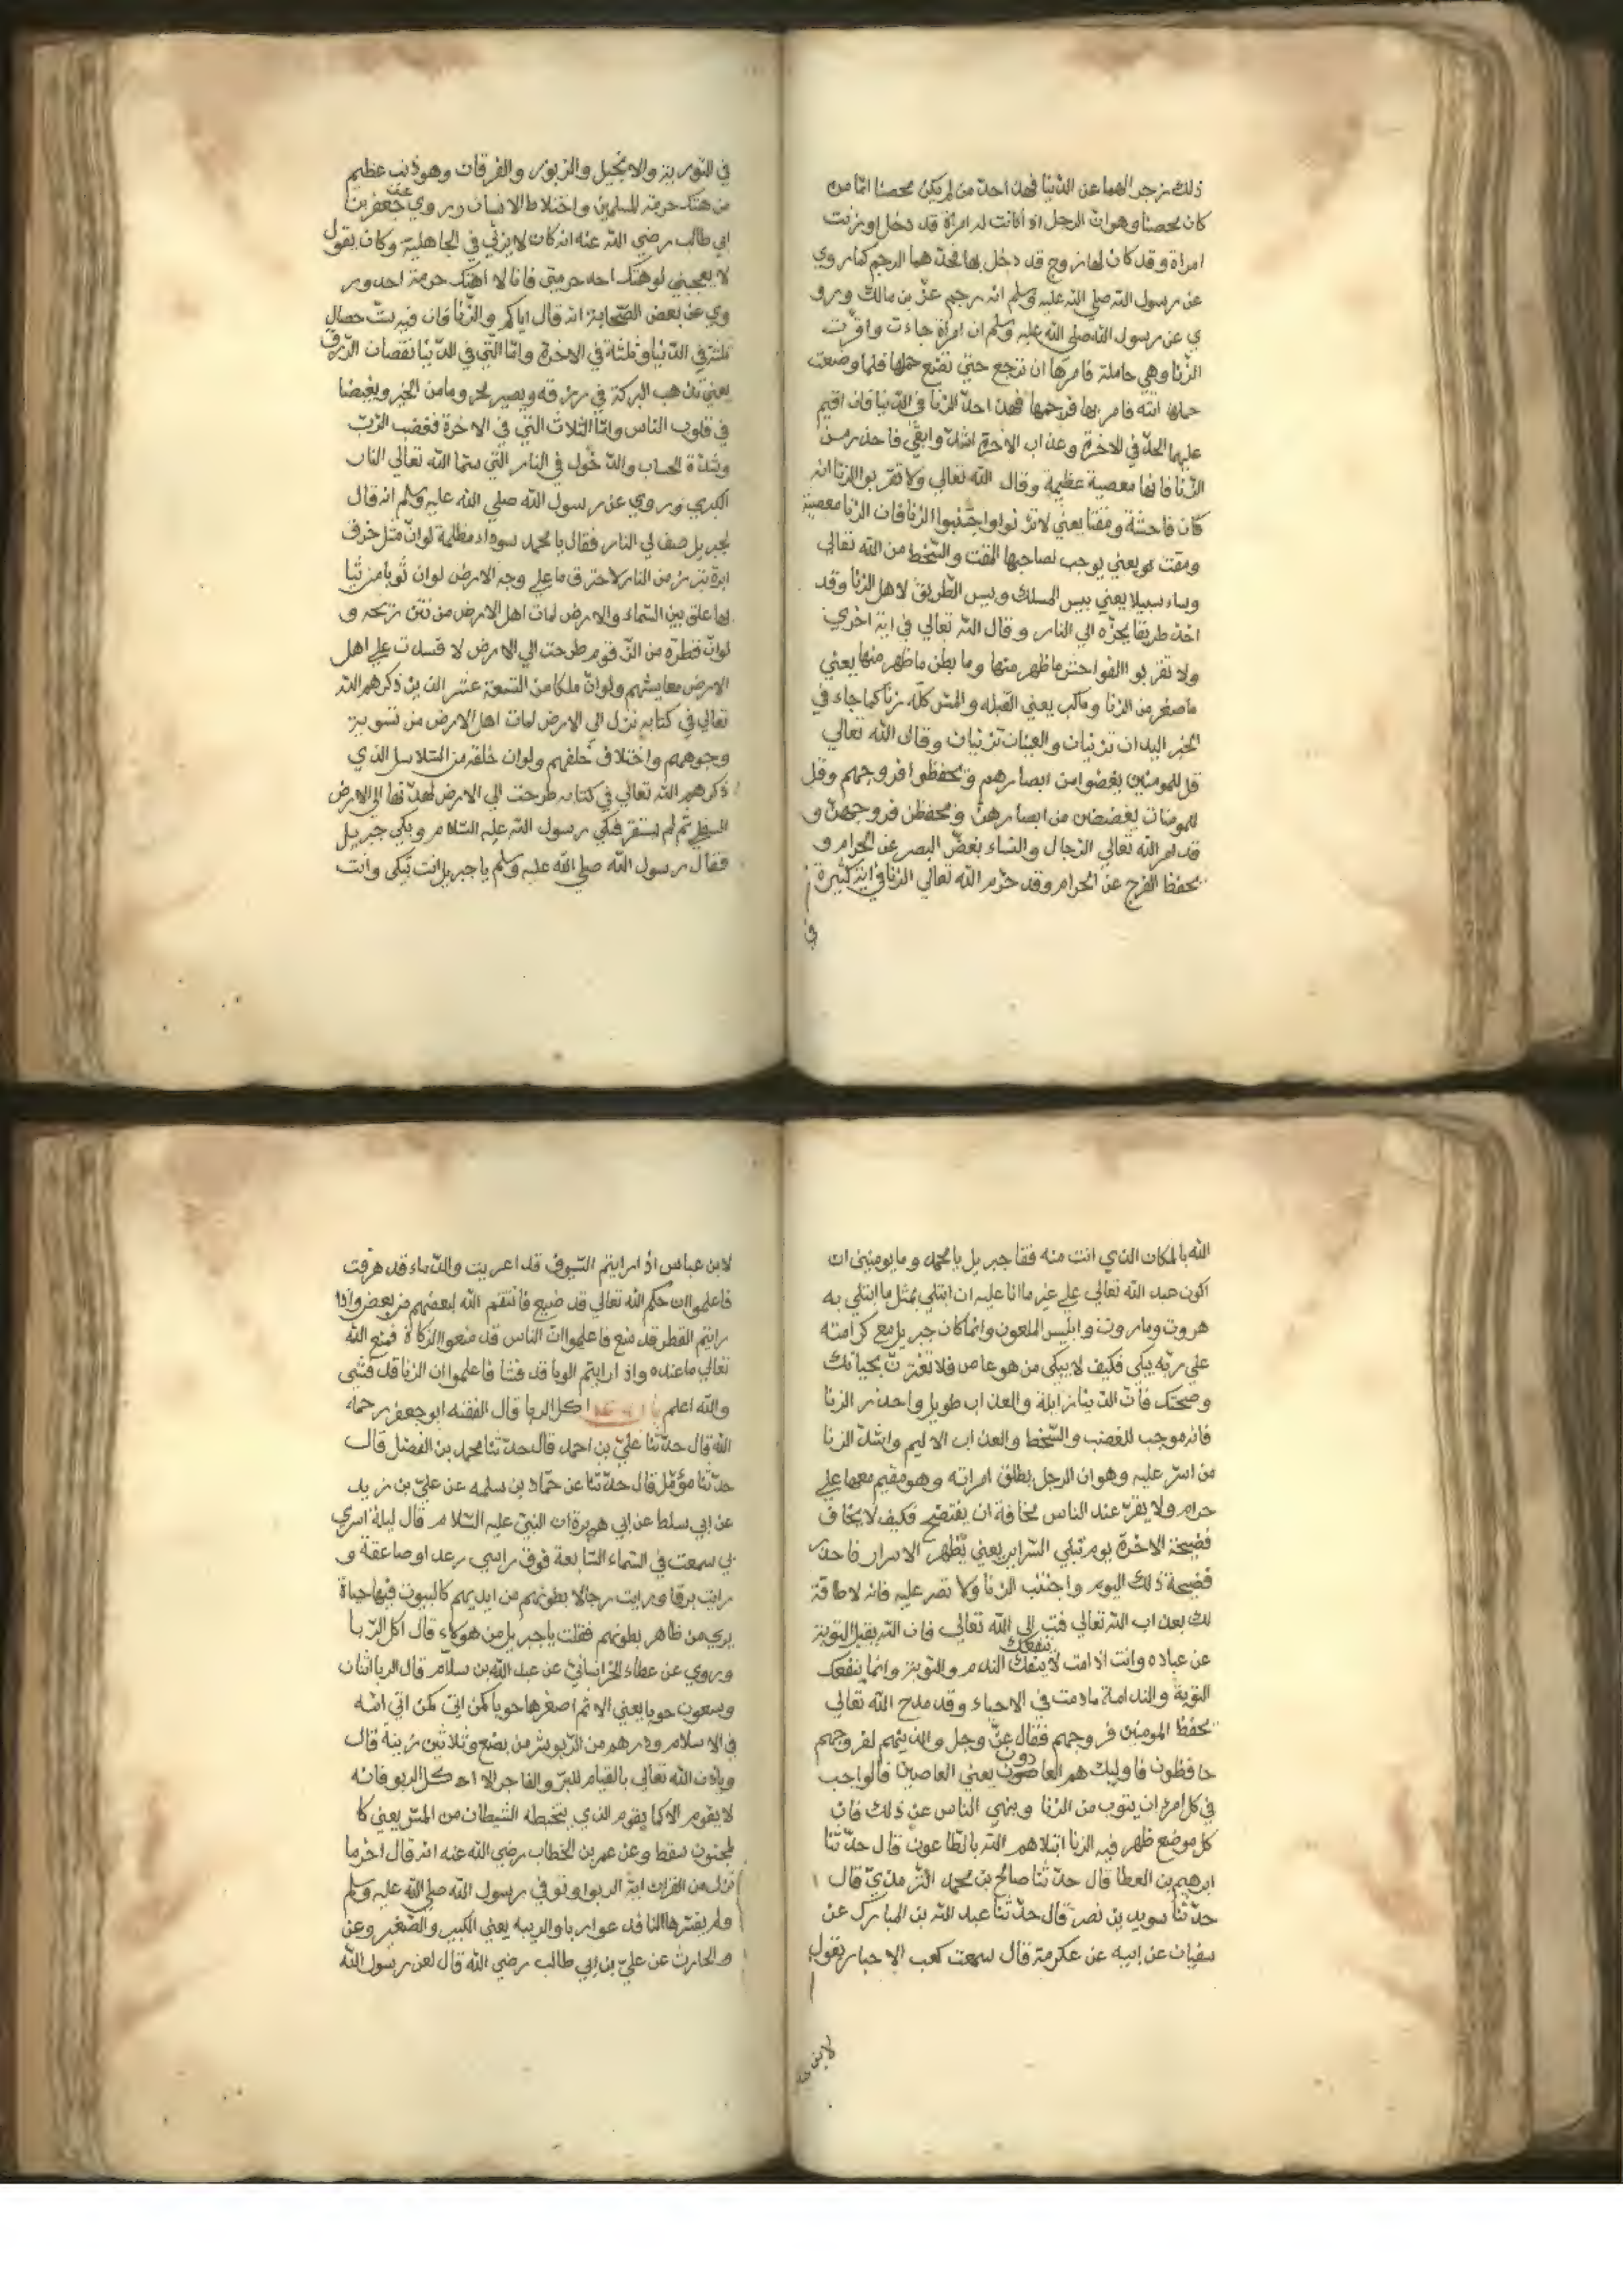 ذلك زجر لهما عن الدنيا فهذا حد من لم يكن محصنا امّا من
كان محصنا وهو انّ الرجل اذا كانت له امراة قد دخل او زنت
امراة وقد كان لها زوج قد دخل بها فحدّهما الرجم كما روي
عن رسول الله صلى الله عليه وسلم انه رجم عزّ بن مالك ورو
ي عن رسول الله صلى الله عليه وسلم ان امراة جاءت واقرّت
الزنا وهي حاملة فامرها ان ترجع حتي تضع حملها فلما وضعت
حملها اتته فامر بها فرجمها فهذا حدّ الزنا في الدنيا فان اقيم
عليهما الحدّ في الاخرة وعذاب الاخرة اشدّ وابقي فاحذر من
الزنا فانها معصية عظيمة وقال الله تعالي ولا تقربو الزنا انه
كان فاحشة ومقتا يعني لا تزنوا واجتنبوا الزنا فان الزنا معصية
ومقت هو يعني يوجب لصاحبها المقت والسّخط من الله تعالي
وساء سبيلا يعني بيس المسلك وبيس الطّريق لاهل الزنا وقد
اخذ طريقا يجرّه الي النار وقال الله تعالي في اية اخري
ولا تقربوا الفواحش ما ظهر منها وما بطن ما ظهر منها يعني
ما صغر من الزنا وما كبر يعني القبله والمسّ كلّه زنا كما جاء في
الخبر اليدان تزنيان والعينان تزنيان وقال الله تعالي
قل للمومنين يغضوا من ابصارهم ويحفظوا فروجهم وقل
للمومنات يغضضن من ابصارهنّ ويحفظن فروجهنّ و
قد امر الله تعالي الرجال والنساء بغضّ البصر عن الحرام و
بحفظ الفرج عن الحرام وقد حرّم الله تعالي الزنا في اية كثيرة
في
في التورية والانجيل والزبور والفرقان وهو ذنب عظيم
من هتك حرمة المسلمين واختلاط الانساب وروي عن جعفر بن
ابي طالب رضي الله عنه انه كان لا يزني في الجاهلية وكان يقول
لا يعجبني لو هتك احد حرمتي فانا لا اهتك حرمة احد ور
وي عن بعض الصّحابة انه قال اياكم والزّنا فان فيه ستّ خصال
ثلثة في الدنيا وثلثة في الاخرة وامّا التي في الدنيا نقصان الرزق
يعني تذهب البركة في رزقه ويصير محروما من الخير وبغيضا
في قلوب الناس وامّا الثلاث التي في الاخرة فغضب الرّبّ
وشدّة الحساب والدّخول في النار التي سمّا الله تعالي النار
الكبري وروي عن رسول الله صلي الله عليه وسلم انه قال
لجبريل صف لي النار فقال يا محمد سوداء مظلمة لو انّ مثل خرق
ابرة تبرز من النار لاحترق ما علي وجه الارض لو ان ثوبا من ثيا
بها علق بين السّماء والارض لمات اهل الارض من نتن ريحه و
لو انّ قطرة من الزّقوم طرحت الي الارض لافسدت علي اهل
الارض معايشهم ولو انّ ملكا من التسعة عشر الذين ذكرهم الله
تعالي في كتابه نزل الي الارض لمات اهل الارض من تشويه
وجوههم واختلاف خلقهم ولو ان حلقة من السّلاسل الذي
ذكرهم الله تعالي في كتابه طرحت الي الارض لهدّتها الي الارض
السفلي ثم لم تستقر فبكي رسول الله عليه السّلام وبكي جبريل
فقال رسول الله صلى الله عليه وسلم يا جبريل انت تبكي وانت
الله بالمكان الذي انت منه فقا جبريل يا محمد وما يومنني ان
اكون عبد الله تعالي علي غير ما انا عليه ان ابتلي بمثل ما ابتلي به
هروت وماروت وابليس الملعون وانما كان جبريل مع كرامته
علي ربّه يبكي فكيف لا يبكي من هو عاص فلا تغترّنّ بحياتك
وصحّتك فانّ الدنيا زايلة والعذاب طويل واحذر الزنا
فانه موجب للغضب والسّخط والعذاب الاليم واشدّ الزنا
من اسرّ عليه وهو ان الرجل يطلق امراته وهو مقيم معها علي
حرام ولا يقرّ عند الناس مخافة ان يفتضح فكيف لا يخاف
فضيحة الاخرة يوم تبلي السّراير يعني يظهر الاسرار فاحذر
فضيحة ذلك اليوم واجتنب الزنا ولا تصر عليه فانه لا طاقة
لك بعذاب الله تعالي فتب الي الله تعالي فان الله يقبل التوبة
عن عباده وانت اذا مت لا ينفعك الندم والتوبة وانما ينفعك
التوبة والندامة ما دمت في الاحياء وقد مدح الله تعالي
بحفظ المومنين فروجهم فقال عزّ وجل والذينهم لفروجهم
حافظون فاوليك هم العادون يعني العاصين فالواجب
في كل امرئ ان يتوب من الزنا وينهي الناس عن ذلك فان
كل موضع ظهر فيه الزنا ابتلاهم الله بالطّاعون قال حدّثنا
ابرهيم بن العطا قال حدّثنا صالح بن محمد الترمذيّ قال
حدّثنا سويد بن نصر قال حدّثنا عبد الله بن المبارك عن
سفيان عن ابيه عن عكرمة قال سمعت كعب الاحبار يقول
لابن عبا
لابن عباس اذا رايتم السّيوف قد اعريت والدّماء قد هرقت
فاعلموا ان حكم الله تعالي قد ضيع فانتقم الله لبعضهم من بعض واذا
رايتم القطر قد منع فاعلموا انّ الناس قد منعوا الزكاة فمنع الله
تعالي ما عنده واذا رايتم الوبا قد فشا فاعلموا ان الزنا قد فشي
والله اعلم اكل الربا قال الفقيه ابو جعفر رحمه
الله قال حدّثنا عليّ بن احمد قال حدّثنا محمد بن الفضل قال
حدّثنا مؤمّل قال حدّثنا عن حمّاد بن سلمه عن عليّ بن زيد
عن ابي سلط عن ابي هريرة ان النبيّ عليه السّلام قال ليلة اسري
بي سمعت في السّماء السّابعة فوق راسي رعدا وصاعقة و
رايت برقا ورايت رجالا بطونهم من ايديهم كالبيوت فيها حياة
يري من ظاهر بطونهم فقلت يا جبريل من هوكاء قال اكل الرّبا
وروي عن عطاء الخراسانيّ عن عبد الله بن سلام قال الربا اثنان
وسعون حوبا يعني الاثم اصغرها حوبا كمن اتي امّه
في الاسلام ودرهم من الرّبو شر من بضع وثلاثين زنية قال
وياذن الله تعالي بالقيام للبرّ والفاجر الا اكل الربو فانه
لا يقوم الا كما يقوم الذي يتخبطه الشيطان من المسّ يعني كا
لمجنون سقط وعن عمر بن الخطاب رضي الله عنه انه قال اخر ما
نزل من القران اية الربوا وتوفي رسول الله صلى الله عليه وسلم
ولم يفسّرها لنا فدعوا ربا والريبه يعني الكبير والصّغير وعن
الحارث عن عليّ بن ابي طالب رضي الله قال لعن رسول الله